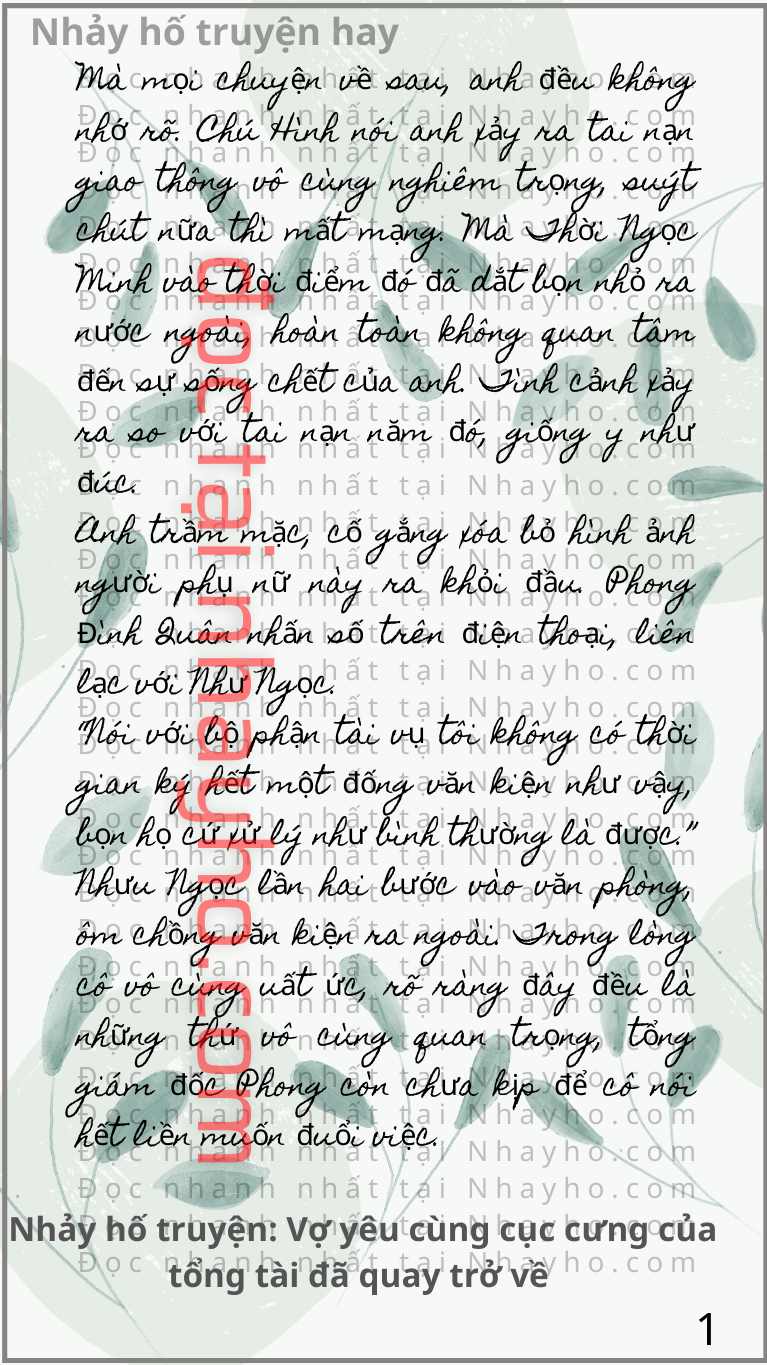 Nhảy hố truyện hay
Mà mọi chuyện về sau, anh đều không
nhớ rõ. Chú Hình nói anh xảy ra tai nạn
giao thông vô cùng nghiêm trọng, suýt
chút nữa thì mất mạng. Mà Thời Ngọc
Minh vào thời điểm đó đã dắt bọn nhỏ ra
nước ngoài, hoàn toàn không quan tâm
đến sự sống chết của anh. Tình cảnh xảy
ra so với tai nạn năm đó, giống y như
đúc.
Anh trầm mặc, cố gắng xóa bỏ hình ảnh
người phụ nữ này ra khỏi đầu. Phong
Đình Quân nhấn số trên điện thoại, liên
lạc với Như Ngọc.
“Nói với bộ phận tài vụ tôi không có thời
gian ký hết một đống văn kiện như vậy,
bọn họ cứ xử lý như bình thường là được.”
Nhưu Ngọc lần hai bước vào văn phòng,
ôm chồng văn kiện ra ngoài. Trong lòng
cô vô cùng uất ức, rõ ràng đây đều là
những thứ vô cùng quan trọng, tổng
giám đốc Phong còn chưa kịp để cô nói
hết liền muốn đuổi việc.
đọc tại nhayho.com
Đọc nhanh nhất tại Nhayho.com
Nhảy hố truyện: Vợ yêu cùng cục cưng của
tổng tài đã quay trở về
1